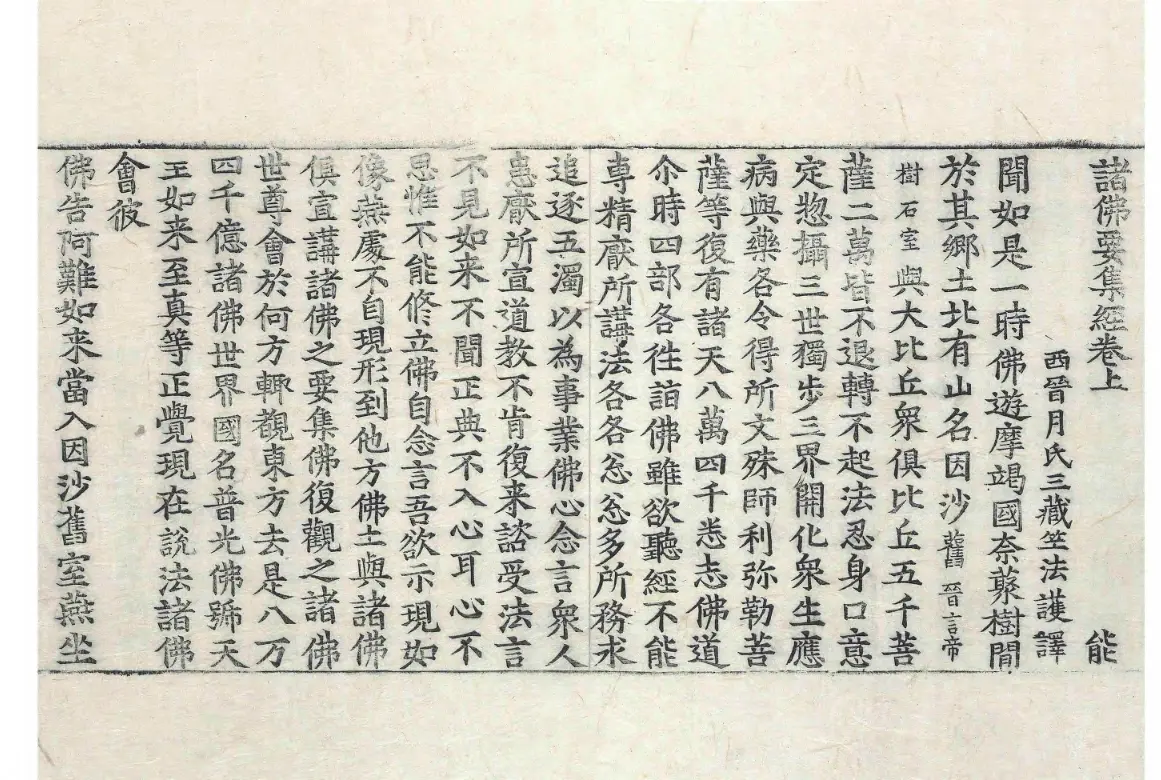 諸佛要集經卷上 能
西晉月氏三藏竺法護譯
聞如是一時佛遊摩竭國奈蘂樹間
於其鄉土北有山名因沙舊晉言帝
樹石室與大比丘衆俱比丘五千菩
薩二萬皆不退轉不起法忍身口意
定揔攝三世獨步三界開化衆生應
病與藥各令得所文殊師利弥勒菩
薩等復有諸天八萬四千悉志佛道
尒時四部各徃詣佛雖欲聽經不能
專精厥所講法各各忩忩多所務求
追逐五濁以為事業佛心念言衆人
恚厭所宣道教不肯復来諮受法言
不見如来不聞正典不入心耳心不
思惟不能修立佛自念言吾欲示現如
像燕處不自現形到他方佛土與諸佛
俱宣講諸佛之要集佛復觀之諸佛
世尊會於何方輙觀東方去是八万
四千億諸佛世界國名普光佛號天
王如来至真等正覺現在說法諸佛
會彼
佛告阿難如来當入因沙舊室燕坐